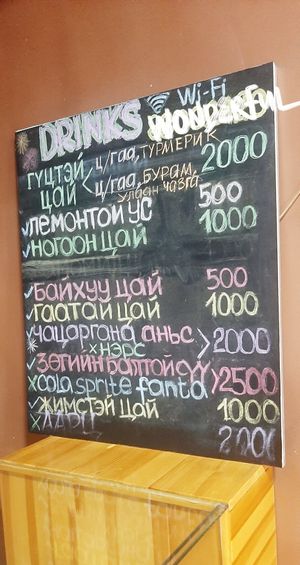 Wi-Fi
DRINKS WONDERFUL
ГҮЦТЭЙ ЦАЙ
Ц/ГАА, ТУРМЕРИК
Ц/ГАА, БУРАМ,
УЛААН ЧАЗГА
2000
ЛЕМОНТОЙ УС 500
НОГООН ЦАЙ 1000
БАЙХУУ ЦАЙ 500
ГААТАЙ ЦАЙ 1000
ЧАЦАРГАНА АНЬС 2000
НЭРС
ЗӨГИЙН БАЛТОЙ СҮҮ 2500
cola sprite fanta
ЖИМСТЭЙ ЦАЙ 1000
2000